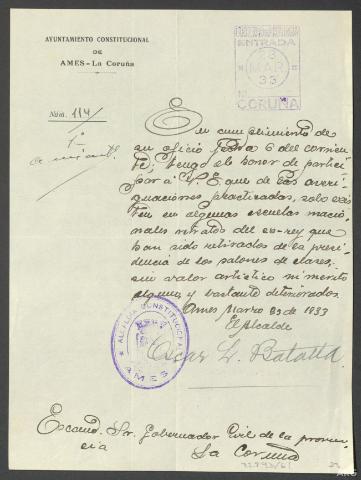 AYUNTAMIENTO CONSTITUCIONAL
DE
AMES-La Coruña
Núm. 114
ENTRADA
MAR
33
CORUÑA
En cumplimiento de
su oficio fecha 6 del corrien
te, tengo el honor de partici
par a V. E. que de las averi
guaciones practicadas, solo exis
ten en algunas escuelas nacio
nales retratos del ex-rey que
han sido retirados de la presi
dencia de los salones de clases,
sin valor artístico ni mérito
alguno y bastante deteriorados.
Ames, Marzo de 1933
El Alcalde
Oscar L. Batalla
ALCALDIA CONSTITUCIONAL
AMES
Excmo. Sr. Gobernador Civil de la provin
cia
La Coruña